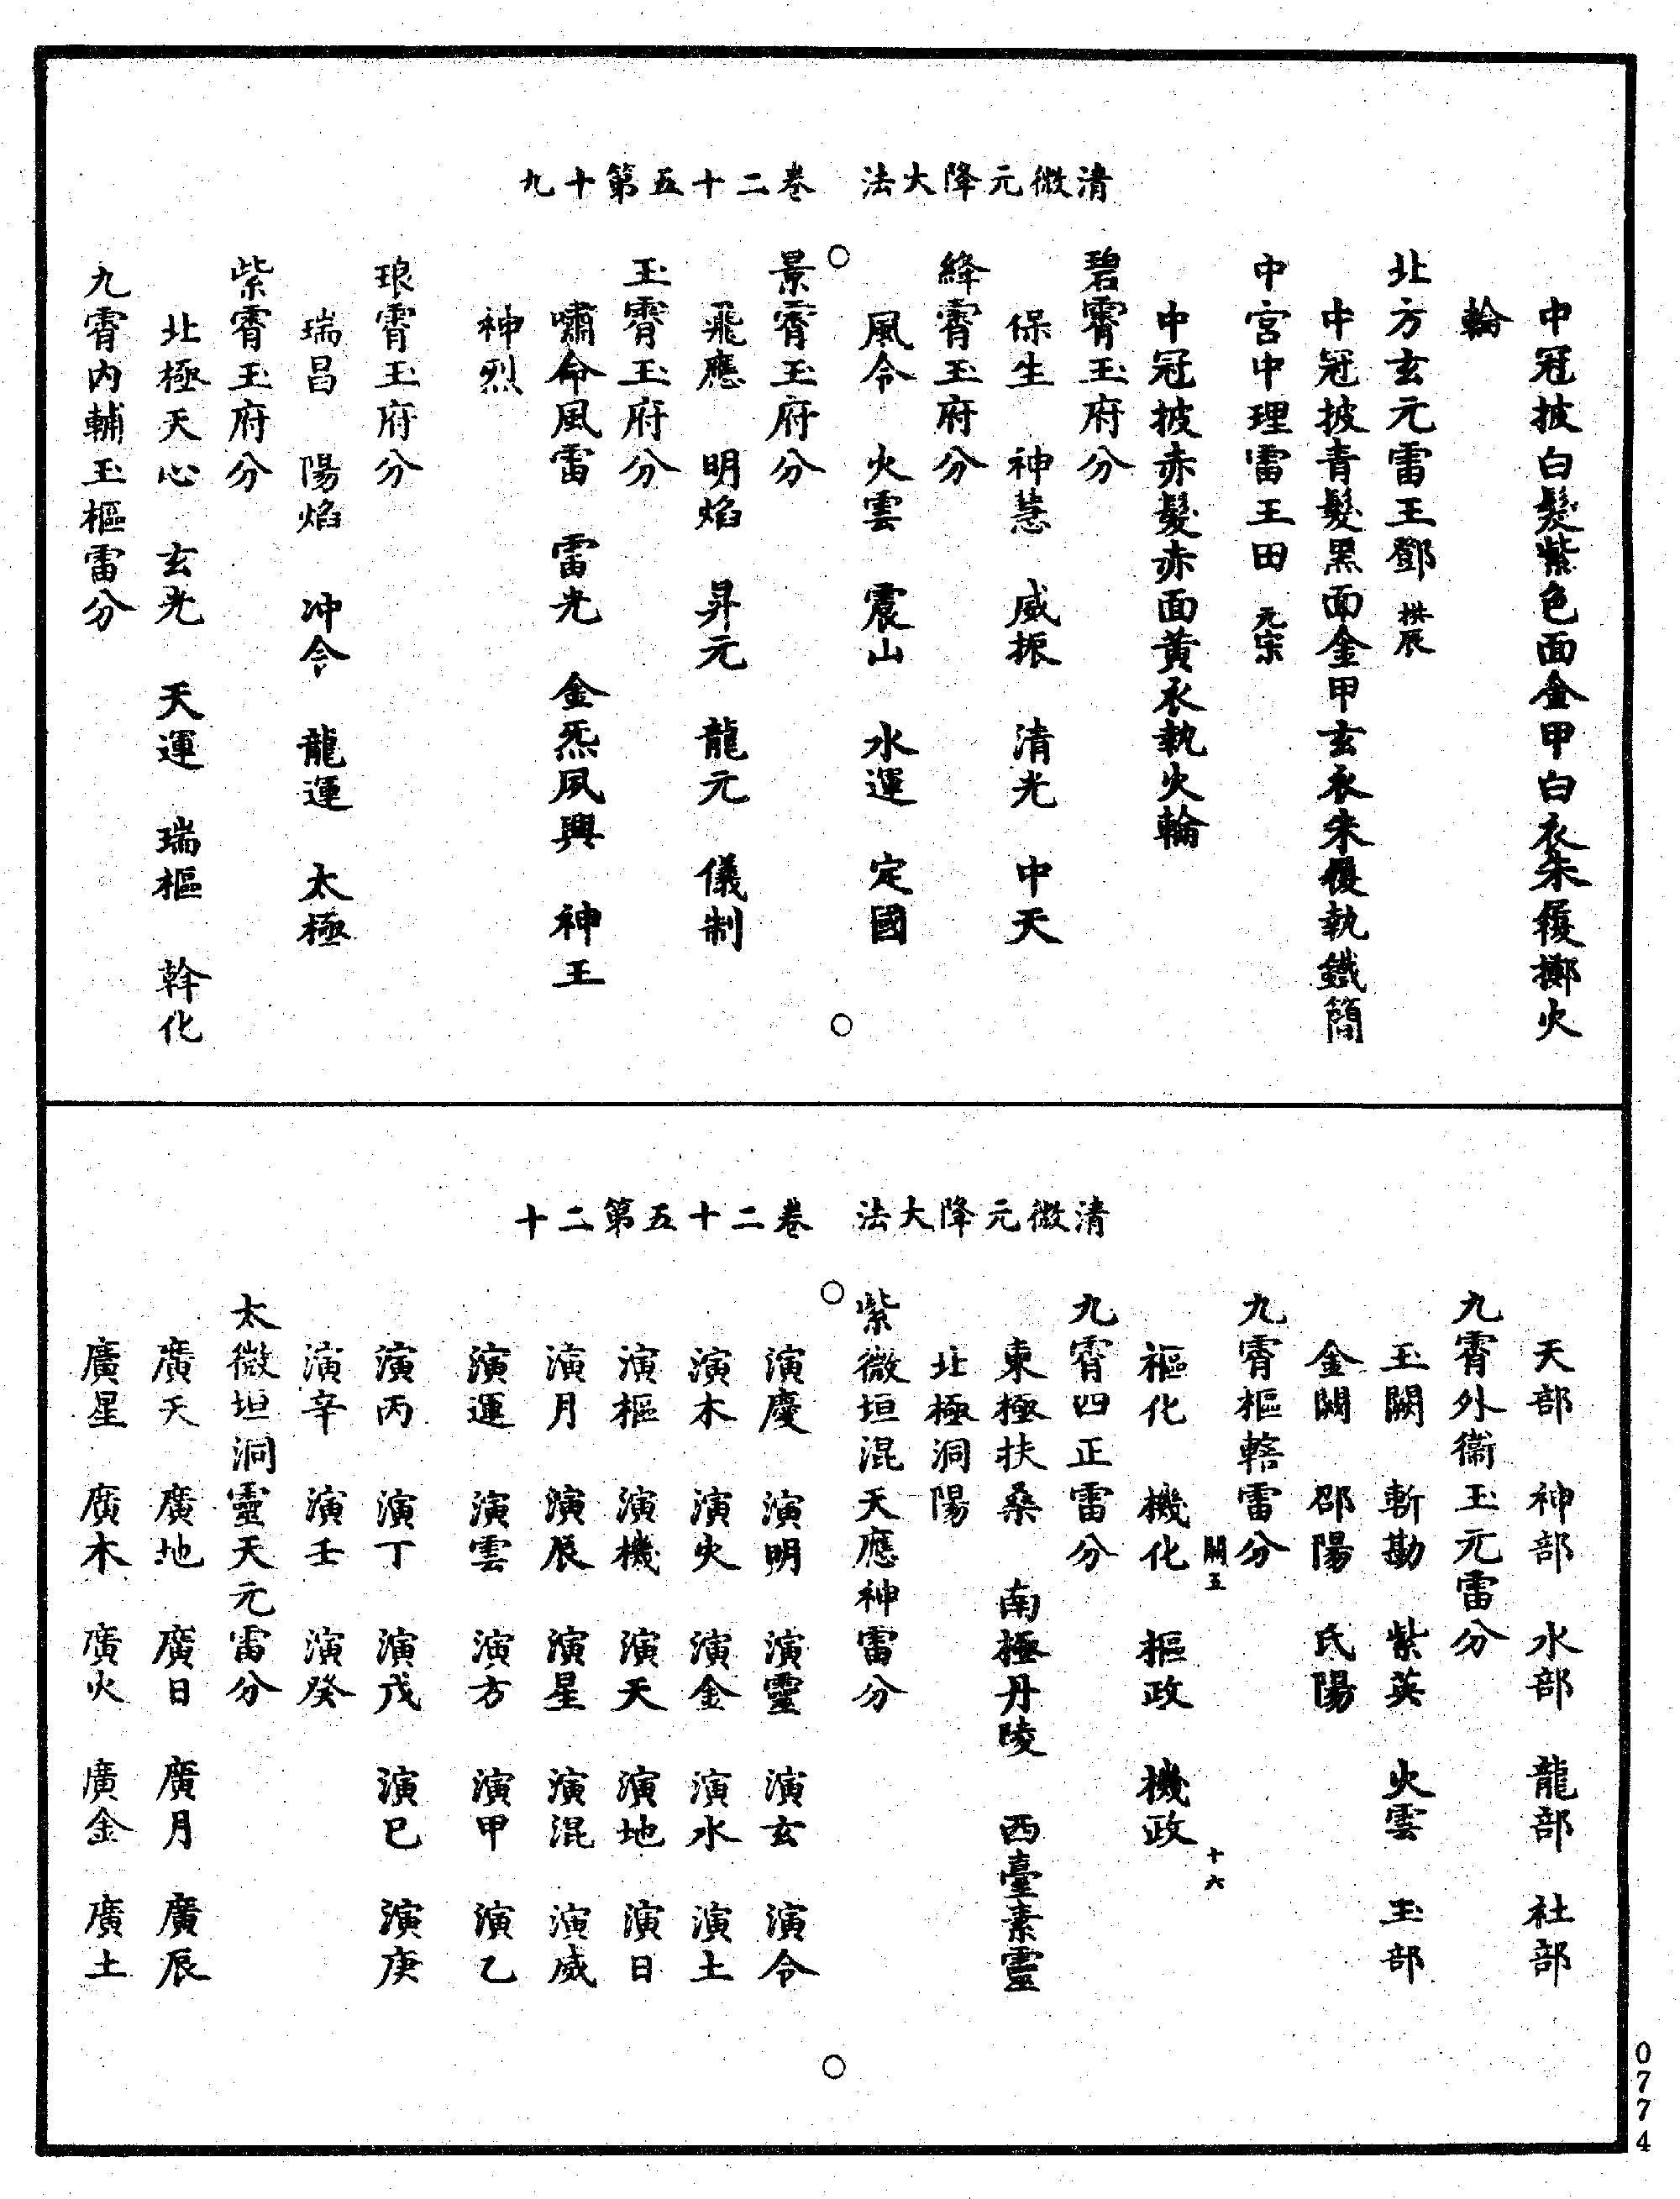 清微元降大法　卷二十五第十九
中冠披白髮紫色面金甲白衣朱履擲火
輪
北方玄元雷王鄧 拱辰
中冠披青髮黑面金甲玄衣朱履執鐵簡
中宮中理雷王田 元宗
中冠披赤髮赤面黃衣執火輪
碧霄玉府分
保生　神慧　威振　清光　中天
絳霄玉府分
風令　火雲　震山　水運　定國
景霄玉府分
飛應　明焰　昇元　龍元　儀制
玉霄玉府分
嘯命風雷　雷光　金炁夙興　神王
神烈
琅霄玉府分
瑞昌　陽焰　沖令　龍運　太極
紫霄玉府分
北極天心　玄光　天運　瑞樞　斡化
九霄內輔玉樞雷分
清微元降大法　卷二十五第二十
天部　神部　水部　龍部　社部
九霄外衞玉元雷分
玉闕　斬勘　紫英　火雲　玉部
金闕　邵陽　氏陽
九霄樞轄雷分
關五　十六
樞化　機化　樞政　機政
九霄四正雷分
東極扶桑　南極丹陵　西臺素靈
北極洞陽
紫微垣混天應神雷分
演慶　演明　演靈　演玄　演令
演木　演火　演金　演水　演土
演樞　演機　演天　演地　演日
演月　演辰　演星　演混　演威
演運　演雲　演方　演甲　演乙
演丙　演丁　演戊　演巳　演庚
演辛　演壬　演癸
太微垣洞靈天元雷分
廣天　廣地　廣日　廣月　廣辰
廣星　廣木　廣火　廣金　廣土
0774